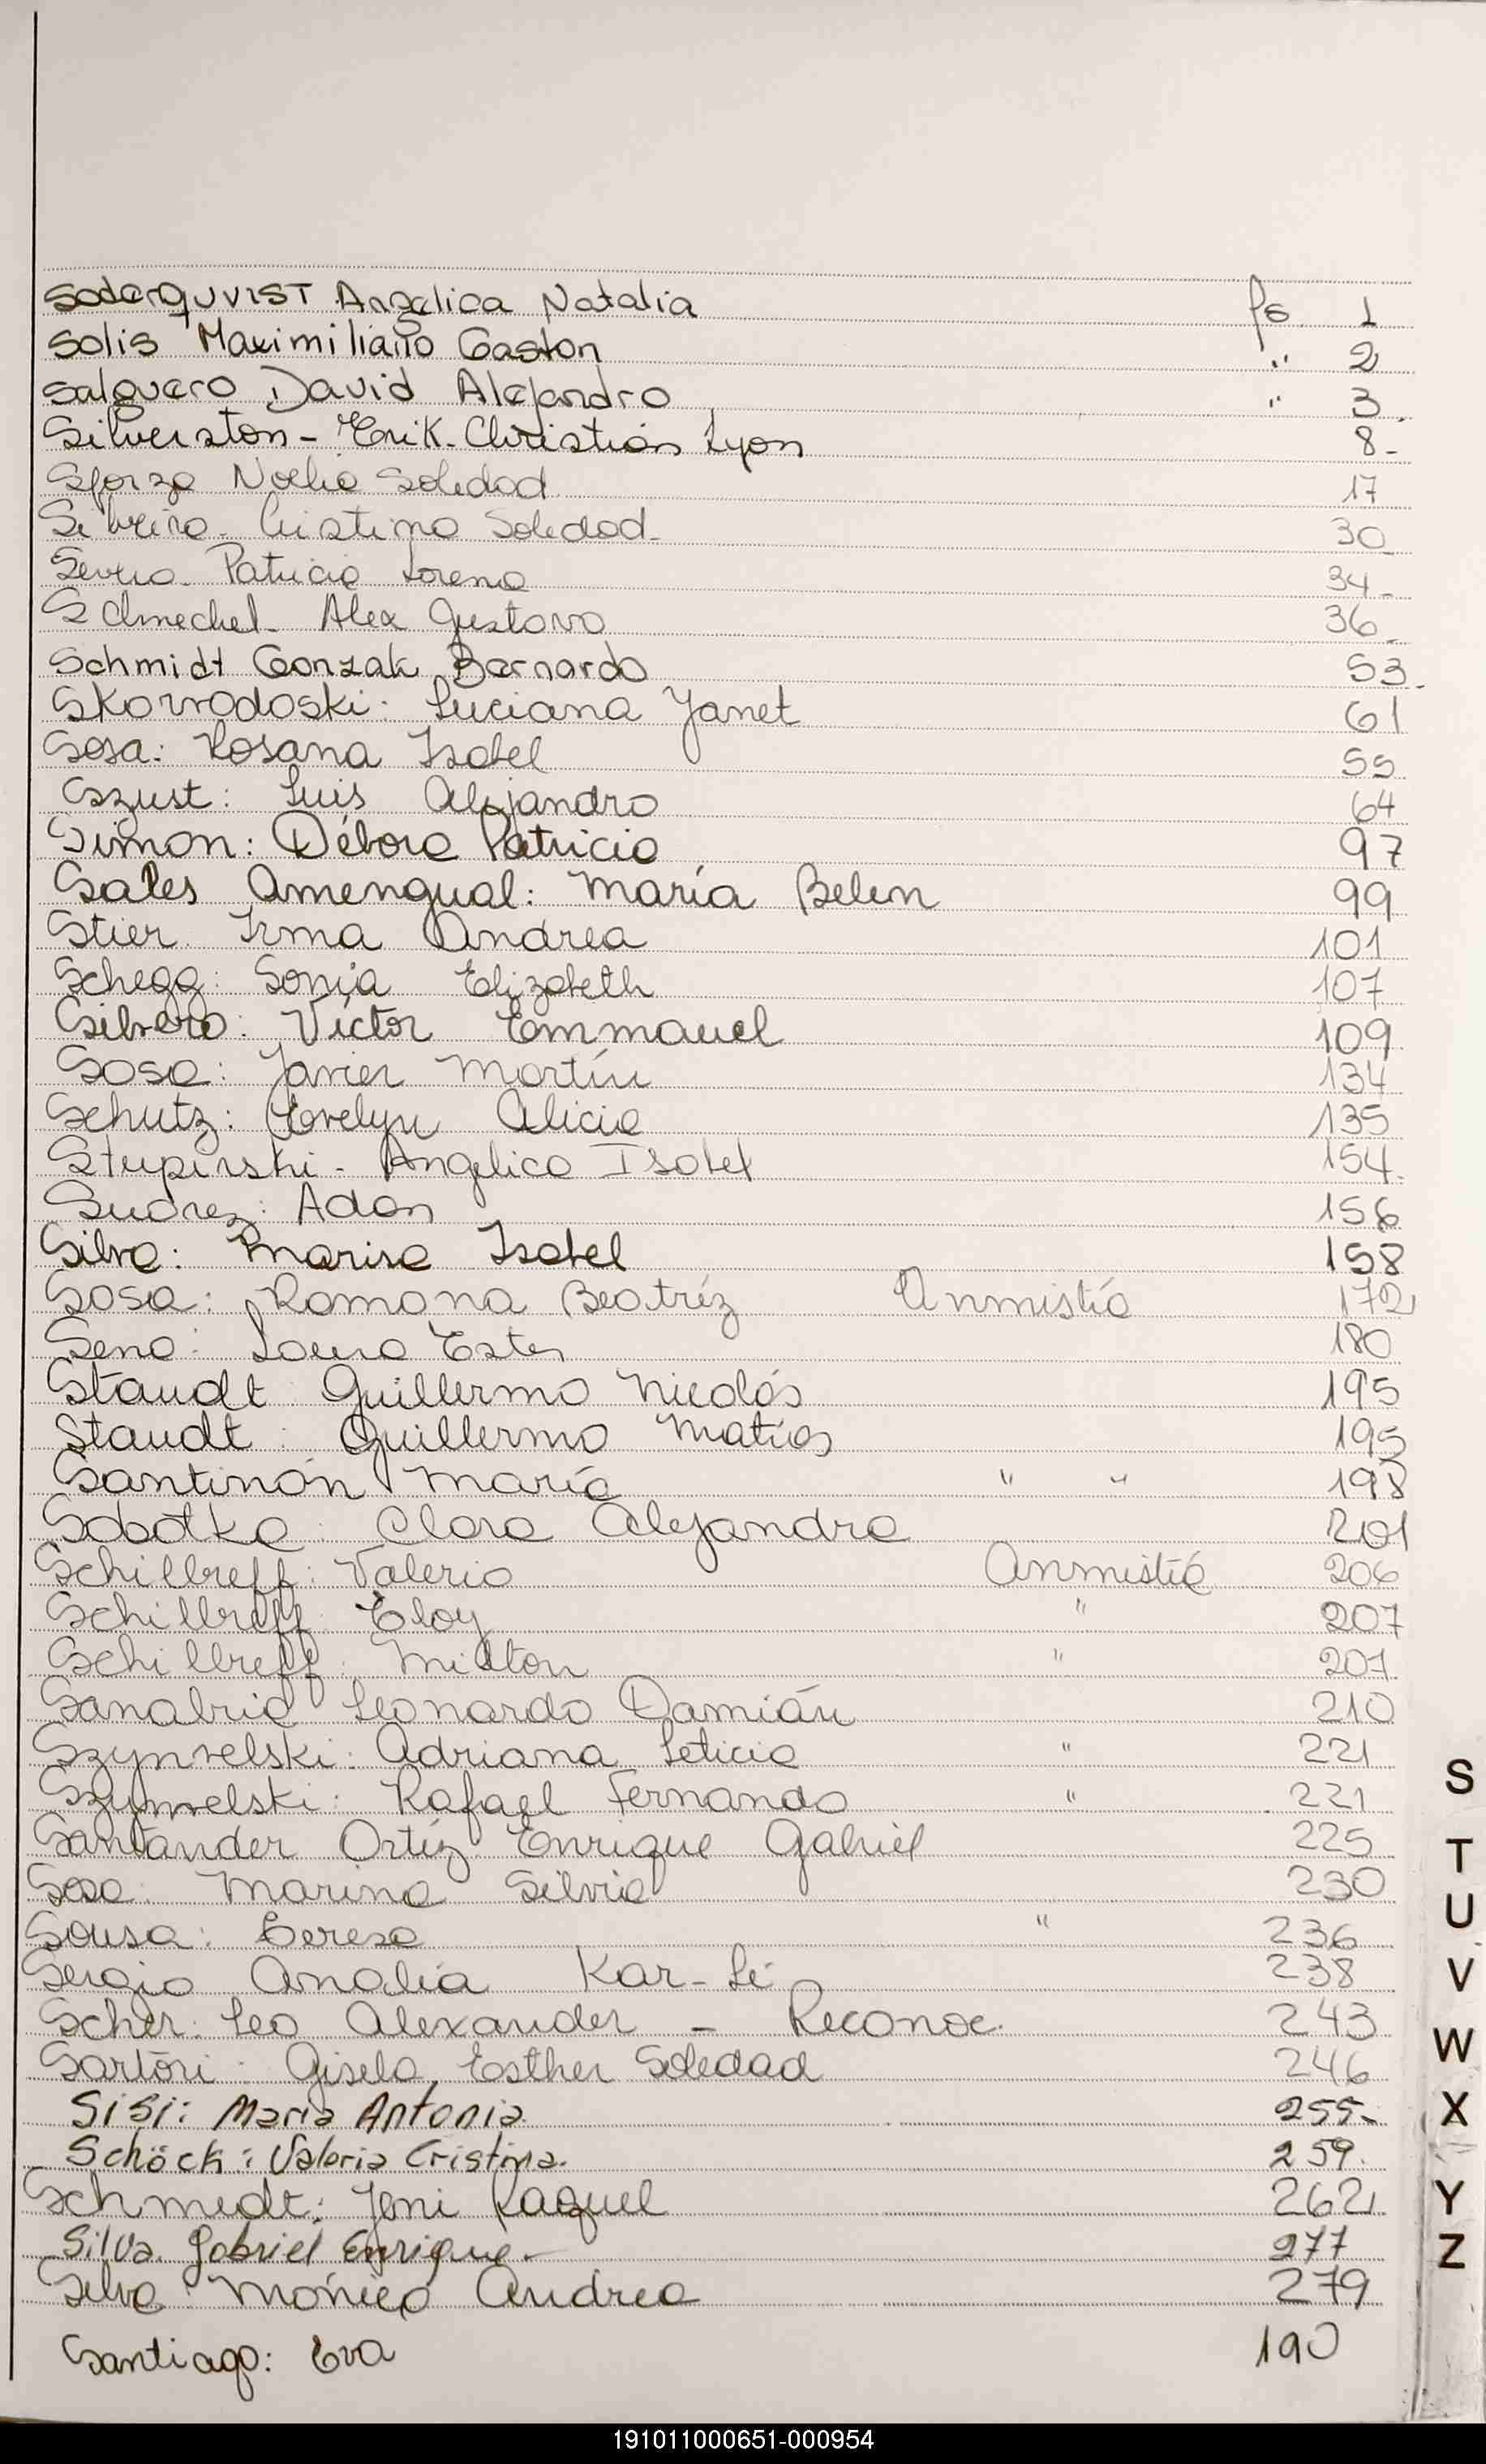 Soderquvist Angelica Natalia fs. 1
Solis Maximiliano Gaston " 2
Salguero David Alejandro " 3
Silverston - Erik - Christian Lyon 8-
Sforza Noelia Soledad 17
Silveira - Cristina Soledad - 30
Severo - Patricia Lorena 34 -
Schmechel - Alex Gustavo 36 -
Schmidt Gonzalo Bernardo 53
Skowrodoski: Luciana Janet 61
Sosa: Rosana Isabel 55
Szust: Luis Alejandro 64
Simon: Débora Patricia 97
Sales Amengual: María Belen 99
Stier Irma Andrea 101
Schegg: Sonia Elizabeth 107
Silvero: Víctor Emmauel 109
Sosa: Javier Martín 134
Schutz: Evelyn Alicia 135
Stupinski - Angelica Isabel 154
Suarez: Adan 156
Silva: Marisa Isabel 158
Sosa: Ramona Beatríz Anmistía 172
Sena: Laura Ester 180
Staudt Guillermo Nicolás 195
Staudt: Guillermo Matías 195
Santinón María " " 198
Sobotka: Clara Alejandra 201
Schillreff: Valeria Anmistía 206
Schillreff: Eloy " 207
Schillreff: Milton " 207
Sanabria Leonardo Damián 210
Szynvelski: Adriana Leticia " 221
Szynvelski: Rafael Fernando " 221
Santander Ortíz Enrique Gabriel 225
Sosa: Marina Silvia 230
Sousa: Teresa " 236
Sergio Analía Kar-Li 238
Scher: Leo Alexander - Reconoc. 243
Sartori: Gisela Esther Soledad 246
Sisi: Maria Antonia 255-
Schöck: Valeria Cristina. 259.
Schmidt: Joni Raquel 262
Silva. Gabriel Enrique - 277
Silva Mónica Andrea 279
Santiago: Eva 190
S
T
U
V
W
X
Y
Z
191011000651-000954